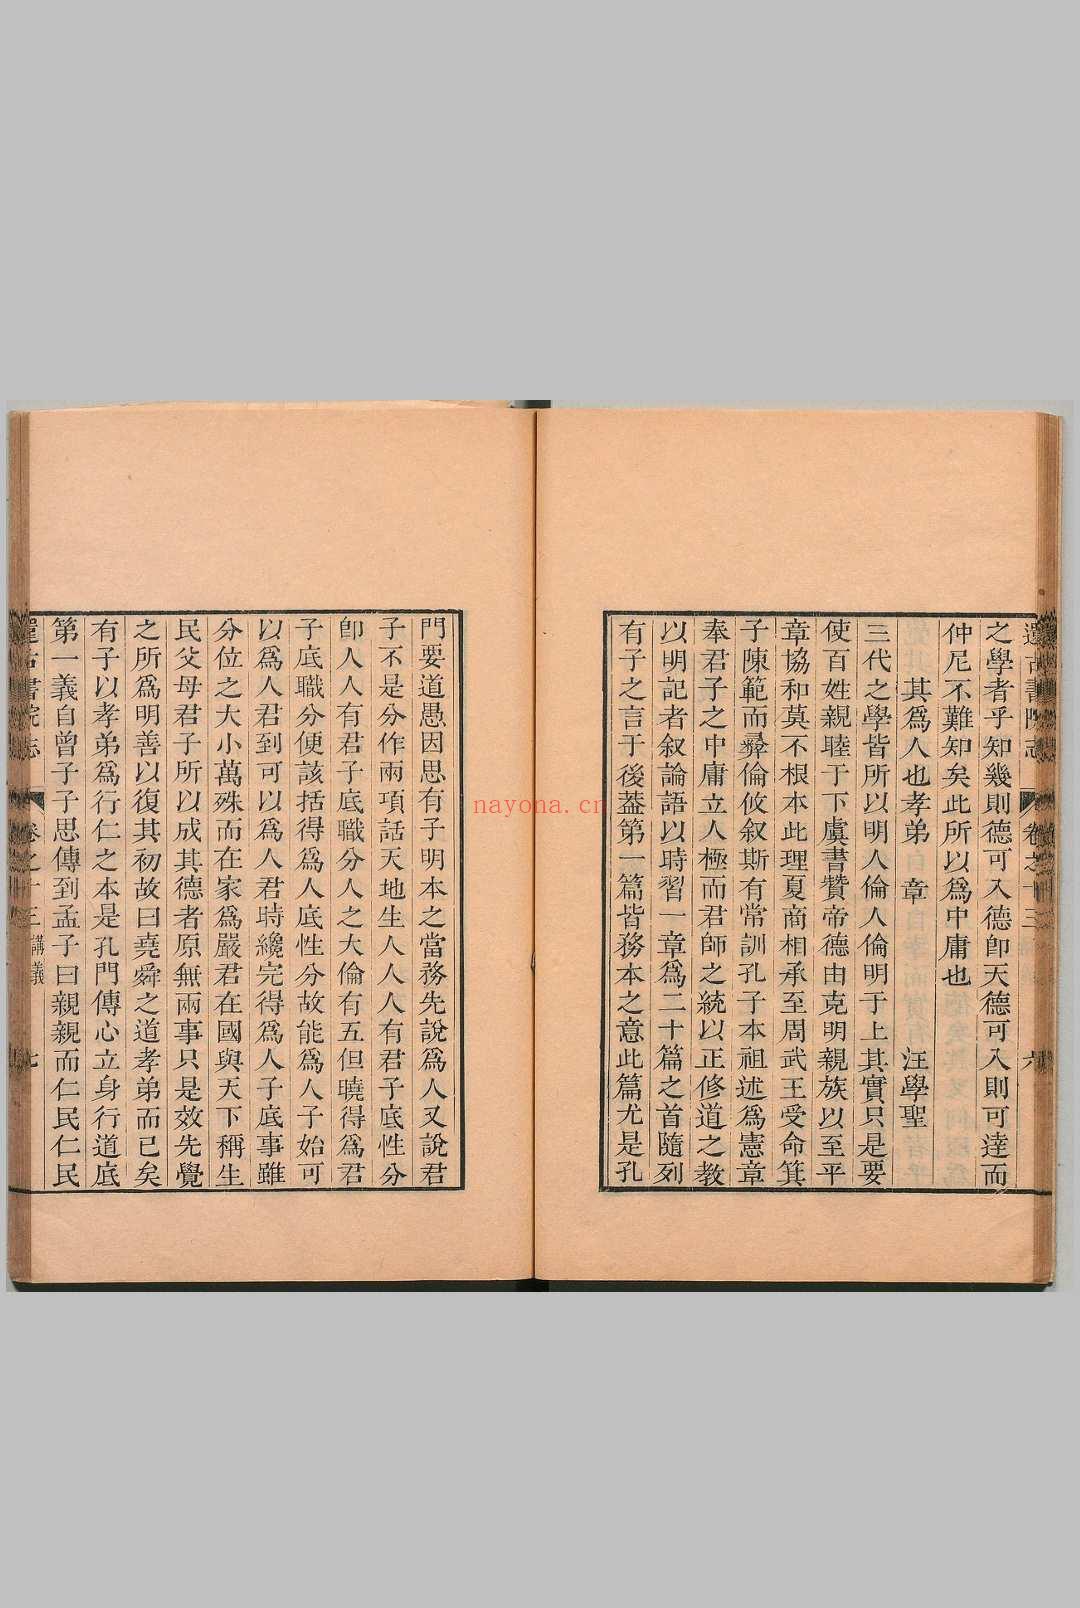 還古書院志 卷之十三 六
之學者乎知幾則德可入德卽天德可入則可達而
仲尼不難知矣此所以爲中庸也
其爲人也孝弟 章 汪學聖
三代之學皆所以明人倫人倫明于上其實只是要
使百姓親睦于下虞書贊帝德由克明親族以至平
章協和莫不根本此理夏商相承至周武王受命箕
子陳範而彝倫攸叙斯有常訓孔子本祖述爲憲章
奉君子之中庸立人極而君師之統以正修道之教
以明記者叙論語以時習一章爲二十篇之首隨列
有子之言于後葢第一篇皆務本之意此篇尤是孔
門要道愚因思有子明本之當務先說爲人又說君
子不是分作兩項話天地生人人人有君子底性分
卽人人有君子底職分人之大倫有五但曉得爲君
子底職分便該括得爲人底性分故能爲人子始可
以爲人君到可以爲人君時纔完得爲人子底事雖
分位之大小萬殊而在家爲嚴君在國與天下稱生
民父母君子所以成其德者原無兩事只是效先覺
之所爲明善以復其初故曰堯舜之道孝弟而已矣
有子以孝弟爲行仁之本是孔門傳心立身行道底
第一義自曾子子思傳到孟子曰親親而仁民仁民
還古書院志 卷之十三 講義 七
nayona.cn